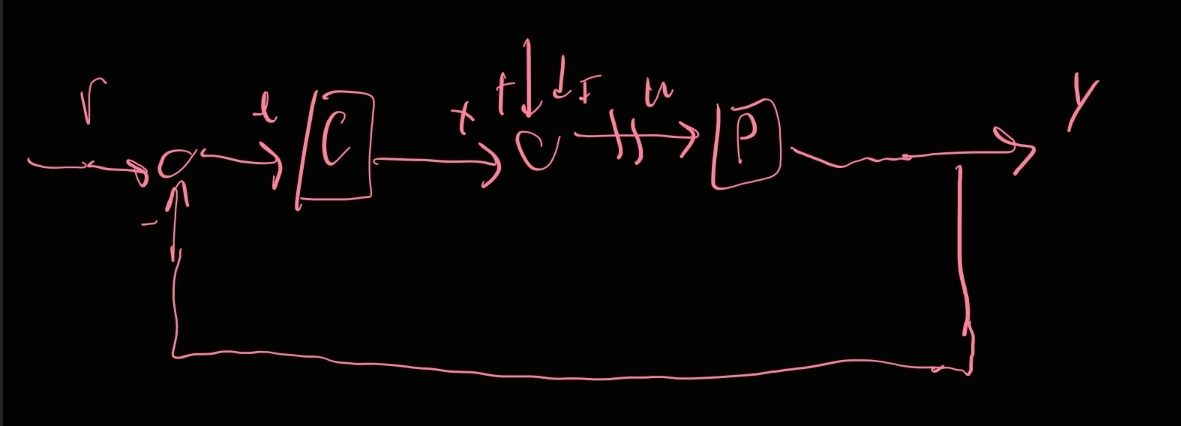 r
e
C
+
+
d
F
u
P
y
-